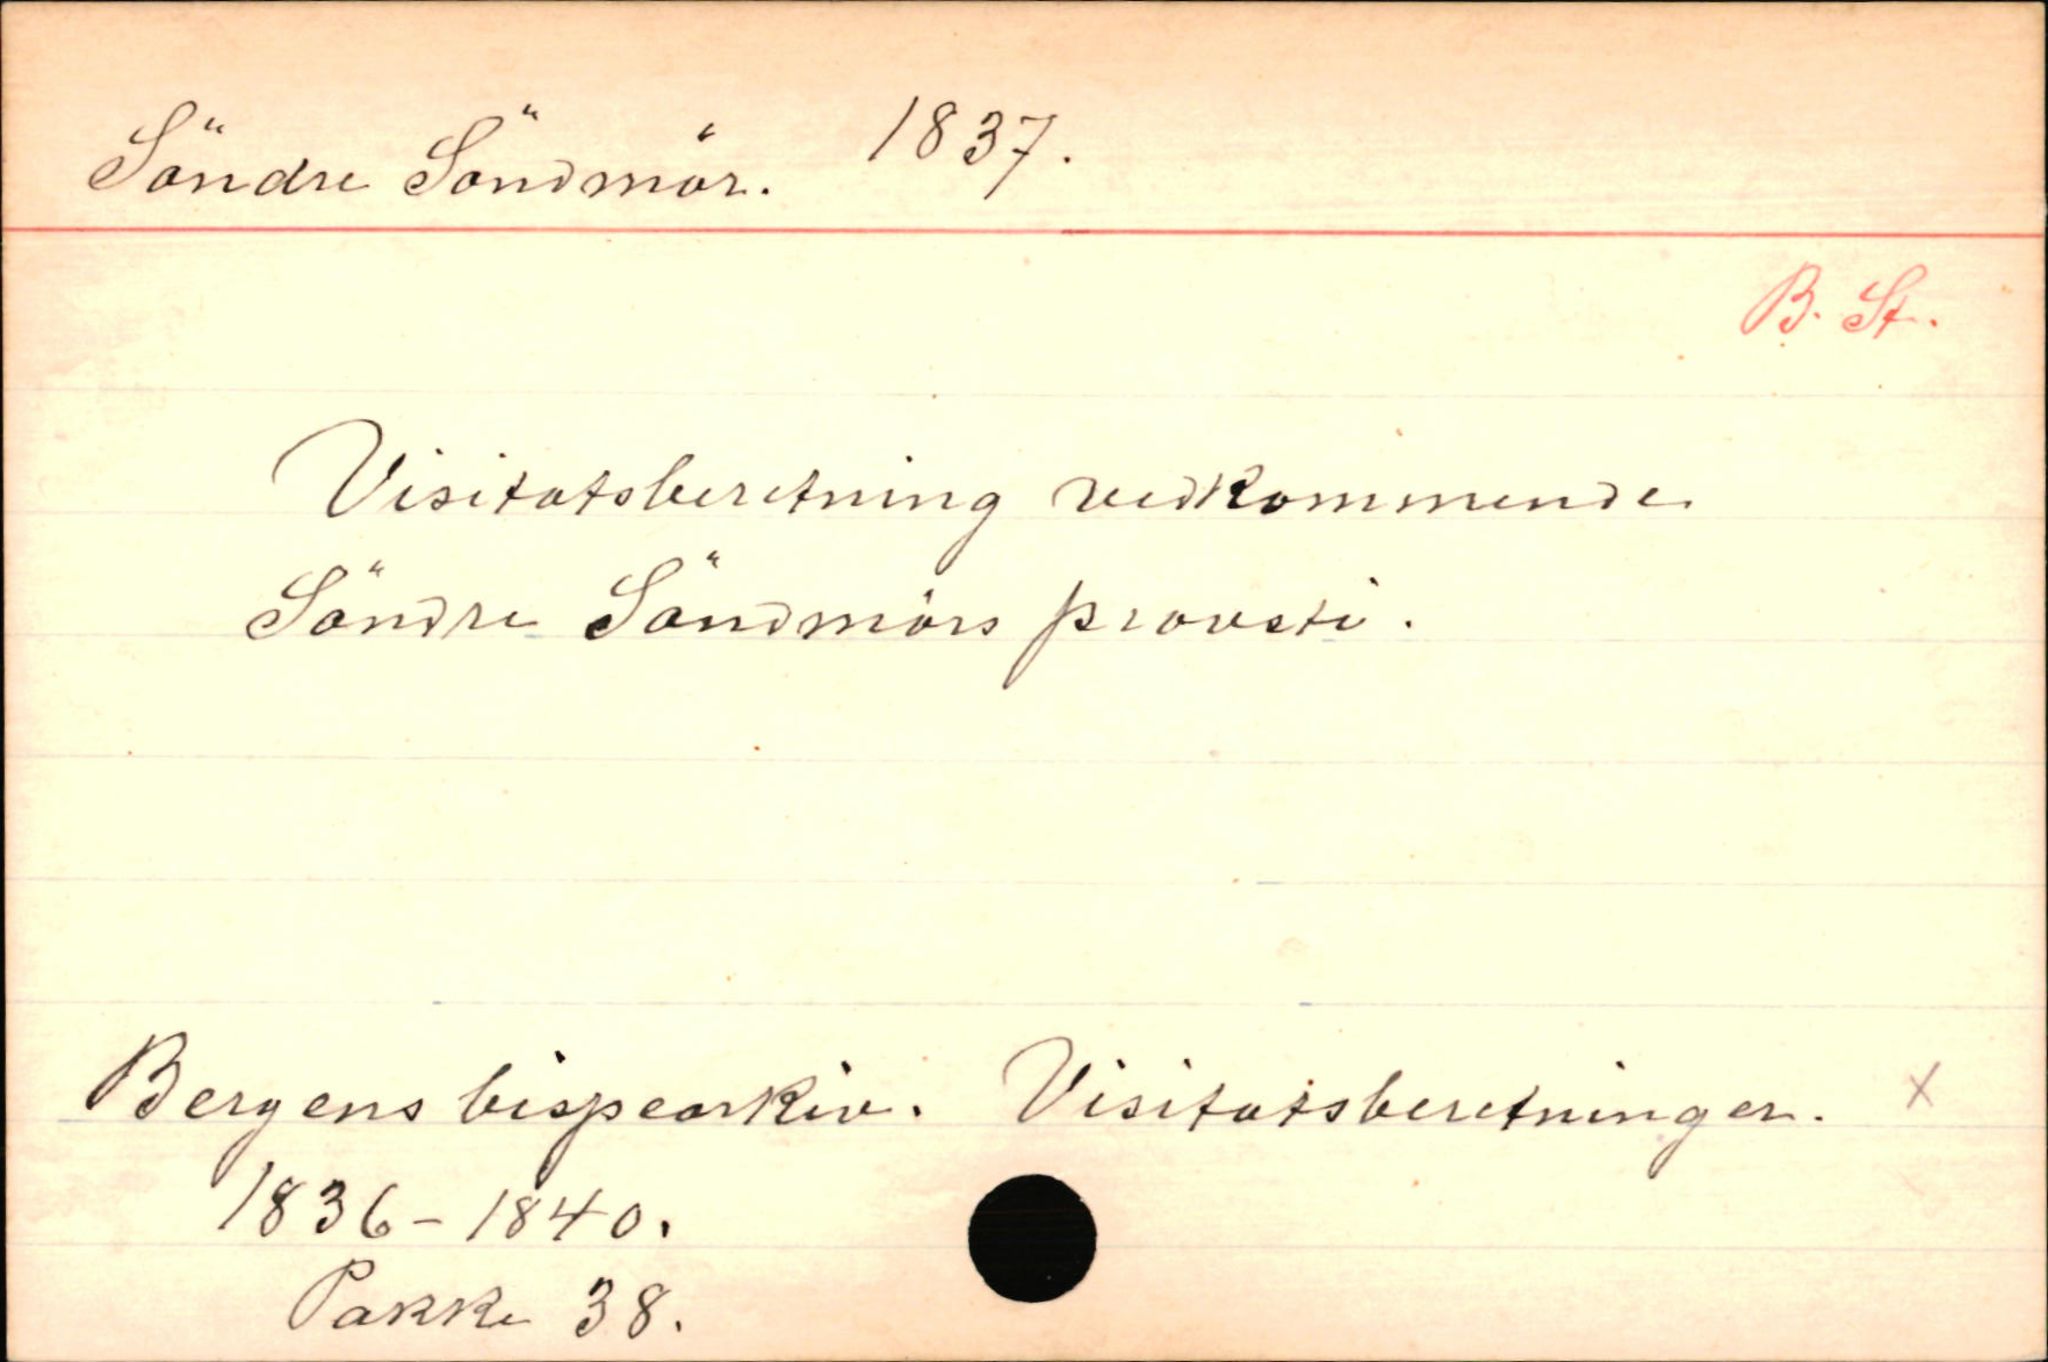 Söndre Söndmör. 1837.
B. St.
Visitatsberetning vedkommende
Söndre Söndmörs provsti.
Bergens bispearkiv. Visitatsberetninger. X
1836-1840.
Pakke 38.